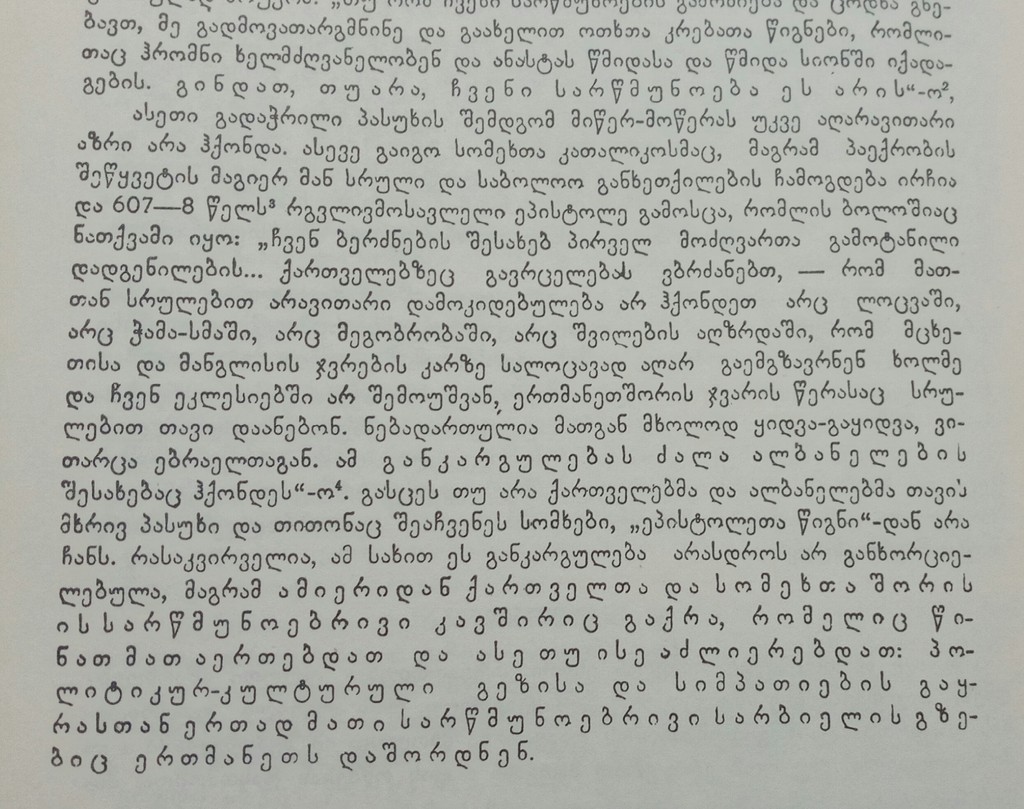 ბავთ, მე გადმოვათარგმნინე და გაახელით ოთხთა კრებათა წიგნები, რომლი-
თაც ჰრომნი ხელმძღვანელობენ და ანასტას წმიდასა და წმიდა სიონში იქადა-
გების. გინდათ, თუ არა, ჩვენი სარწმუნოება ეს არის“-ო²,
ასეთი გადაჭრილი პასუხის შემდგომ მიწერ-მოწერას უკვე აღარავითარი
აზრი არა ჰქონდა. ასევე გაიგო სომეხთა კათალიკოსმაც, მაგრამ პაექრობის
შეწყვეტის მაგიერ მან სრული და საბოლოო განხეთქილების ჩამოგდება ირჩია
და 607—8 წელს³ რგვლივმოსავლელი ეპისტოლე გამოსცა, რომლის ბოლოშიაც
ნათქვამი იყო: „ჩვენ ბერძნების შესახებ პირველ მოძღვართა გამოტანილი
დადგენილების... ქართველებზეც გავრცელებას ვბრძანებთ, — რომ მათ-
თან სრულებით არავითარი დამოკიდებულება არ ჰქონდეთ არც ლოცვაში,
არც ჭამა-სმაში, არც მეგობრობაში, არც შვილების აღზრდაში, რომ მცხე-
თისა და მანგლისის ჯვრების კარზე სალოცავად აღარ გაემგზავრნენ ხოლმე
და ჩვენ ეკლესიებში არ შემოუშვან, ერთმანეთშორის ჯვარის წერასაც სრუ-
ლებით თავი დაანებონ. ნებადართულია მათგან მხოლოდ ყიდვა-გაყიდვა, ვი-
თარცა ებრაელთაგან. ამ განკარგულებას ძალა ალბანელების
შესახებაც ჰქონდეს“-ო⁴. გასცეს თუ არა ქართველებმა და ალბანელებმა თავის
მხრივ პასუხი და თითონაც შეაჩვენეს სომხები, „ეპისტოლეთა წიგნი“-დან არა
ჩანს. რასაკვირველია, ამ სახით ეს განკარგულება არასდროს არ განხორციე-
ლებულა, მაგრამ ამიერიდან ქართველთა და სომეხთა შორის
ის სარწმუნოებრივი კავშირიც გაქრა, რომელიც წი-
ნათ მათ აერთებდათ და ასე თუ ისე აძლიერებდათ: პო-
ლიტიკურ-კულტურული გეზისა და სიმპათიების გაყ-
რასთან ერთად მათი სარწმუნოებრივი სარბიელის გზე-
ბიც ერთმანეთს დაშორდნენ.